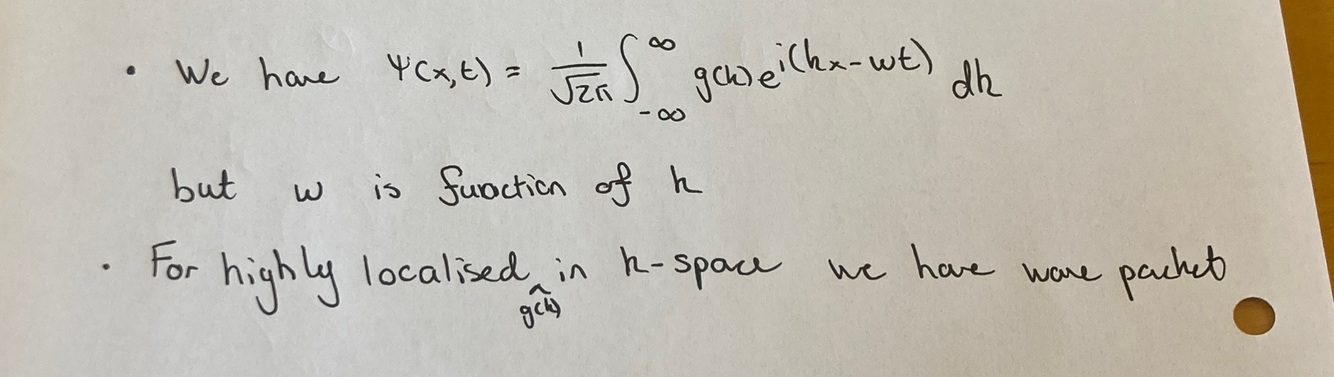 • We have Ψ(x,t) = 1/√2π ∫_{-∞}^{∞} g(k) e^{i(kx-wt)} dk
but w is function of k
• For highly localised g(k) in k-space we have wave packet